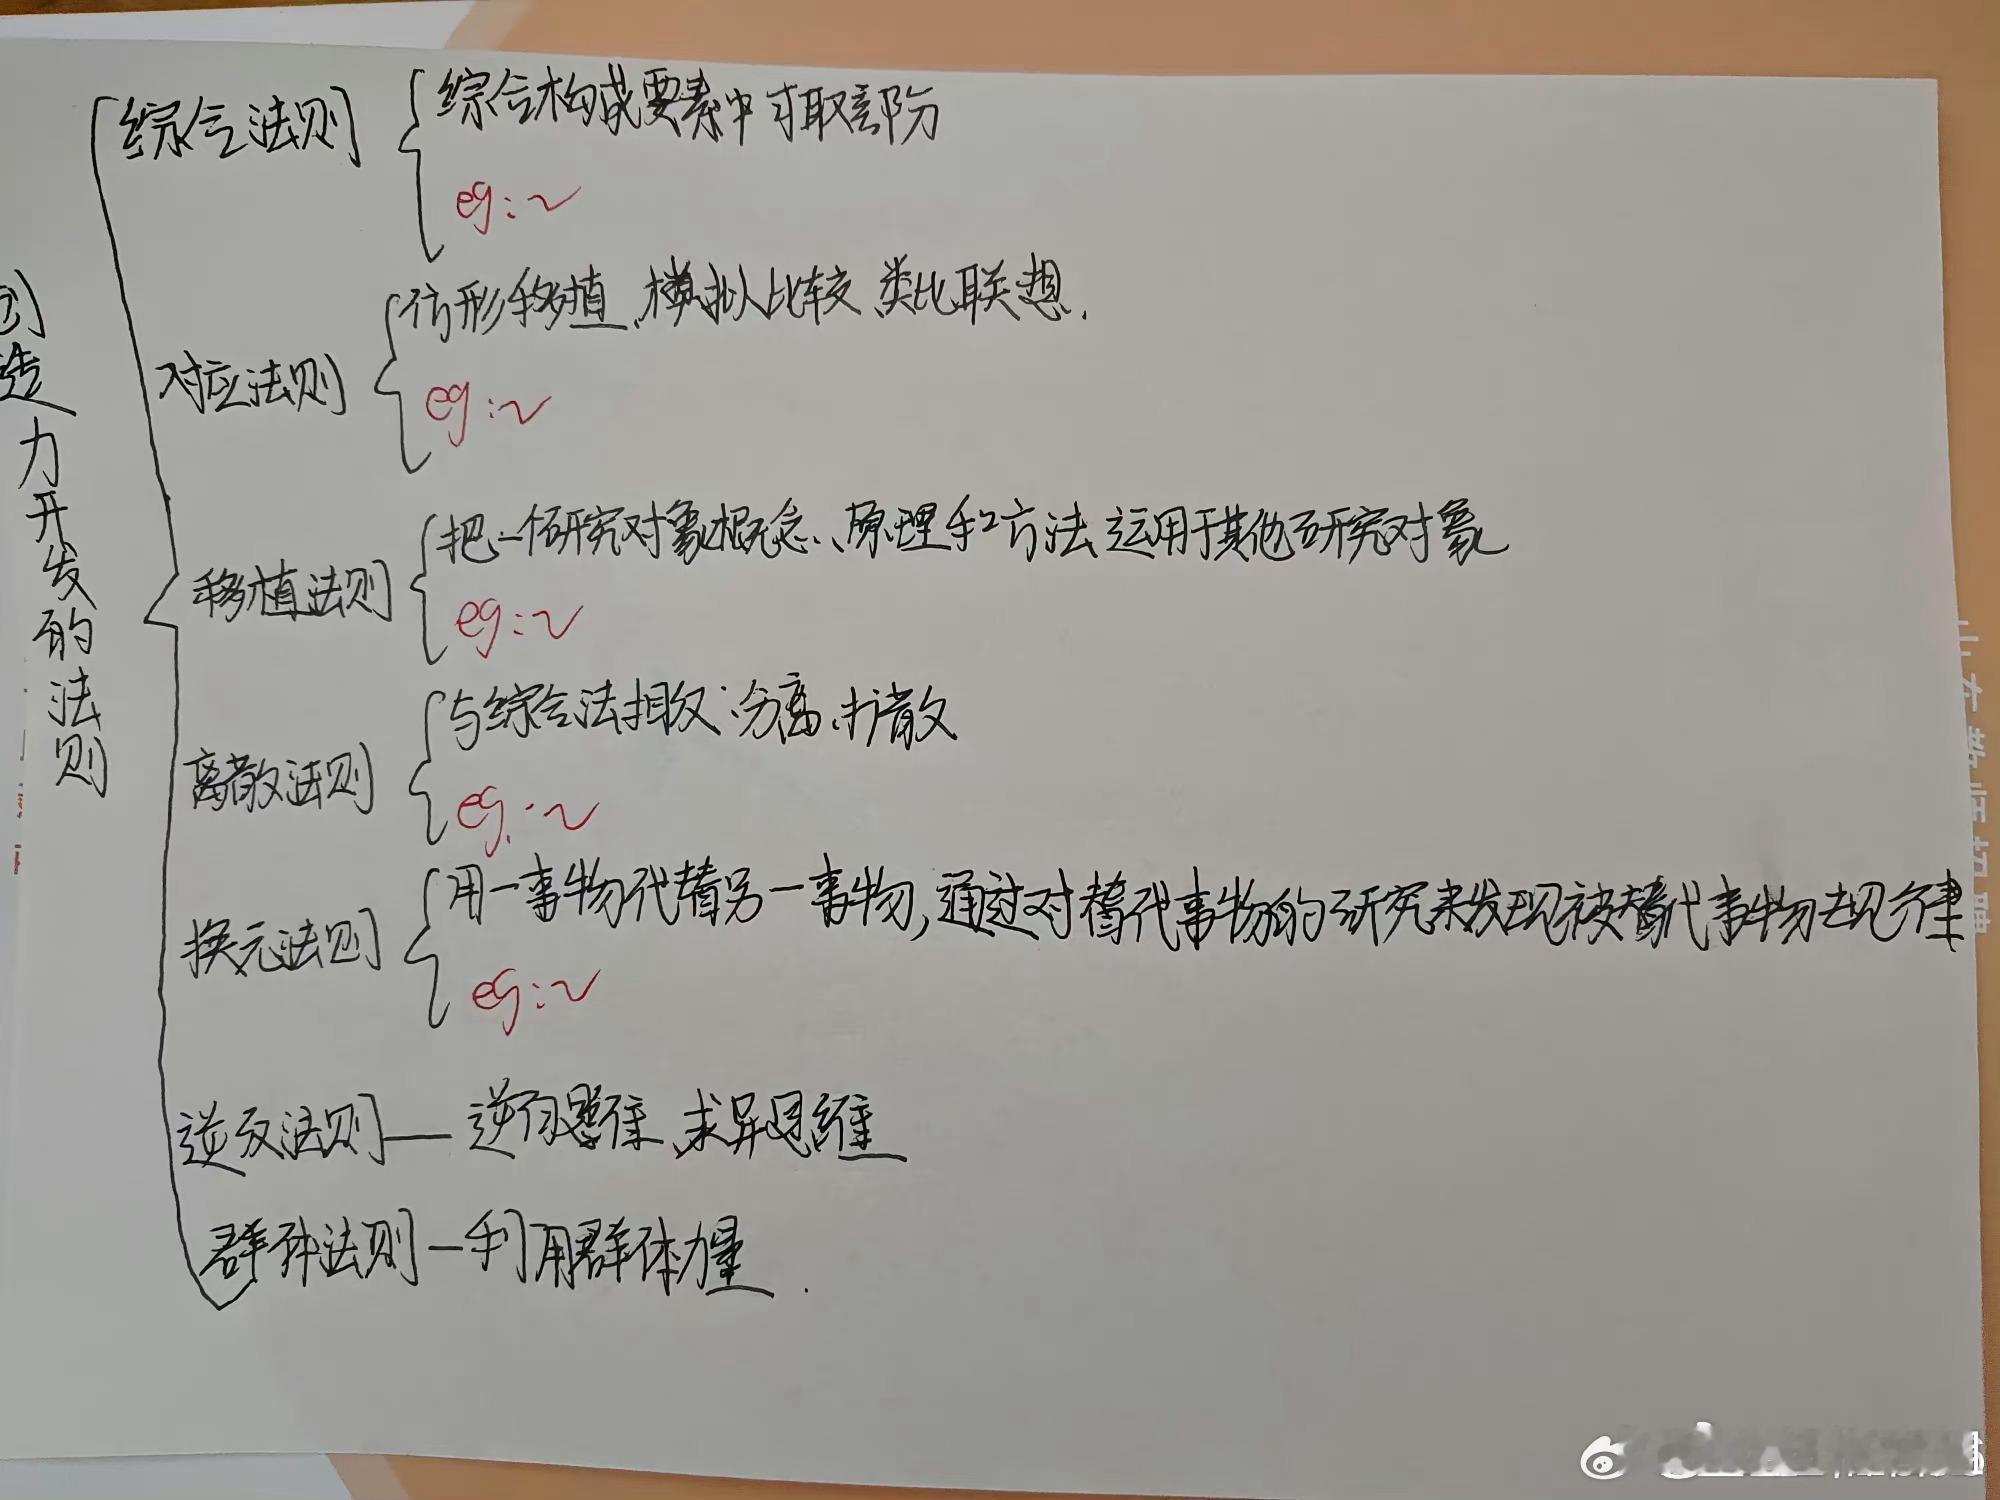 创造力开发的法则
综合法则
综合构成要素中可取部分
eg:~
仿形移植、模拟比较、类比联想.
对应法则
eg:~
把一个研究对象概念、原理和方法运用于其他研究对象
移植法则
eg:~
与综合法相反:分离、扩散
离散法则
eg:~
用一事物代替另一事物,通过对替代事物的研究来发现被替代事物法规律
换元法则
eg:~
逆反法则——逆向思维、求异思维
群体法则—利用群体力量.